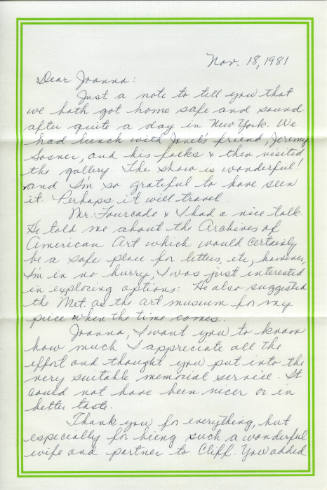 Nov. 18, 1981
Dear Joanna:
Just a note to tell you that
we both got home safe and sound
after quite a day in New York. We
had lunch with Janet's friend, Jeremy
Sosner, and his folks & then visited
the gallery. The show is wonderful
and I'm so grateful to have seen
it. Perhaps it will travel.
Mr. Fourcade & I had a nice talk.
He told me about the Archives of
American Art which would certainly
be a safe place for letters, etc, however,
I'm in no hurry, I was just interested
in exploring options. He also suggested
the Met. as the art museum for my
piece when the time comes.
Joanna, I want you to know
how much I appreciate all the
effort and thought you put into the
very suitable memorial service. It
could not have been nicer or in
better taste.
Thank you for everything, but
especially for being such a wonderful
wife and partner to Cliff. You added